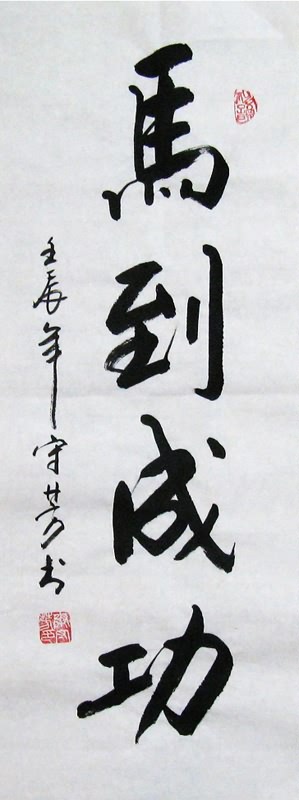 馬到成功
壬辰年守芳书